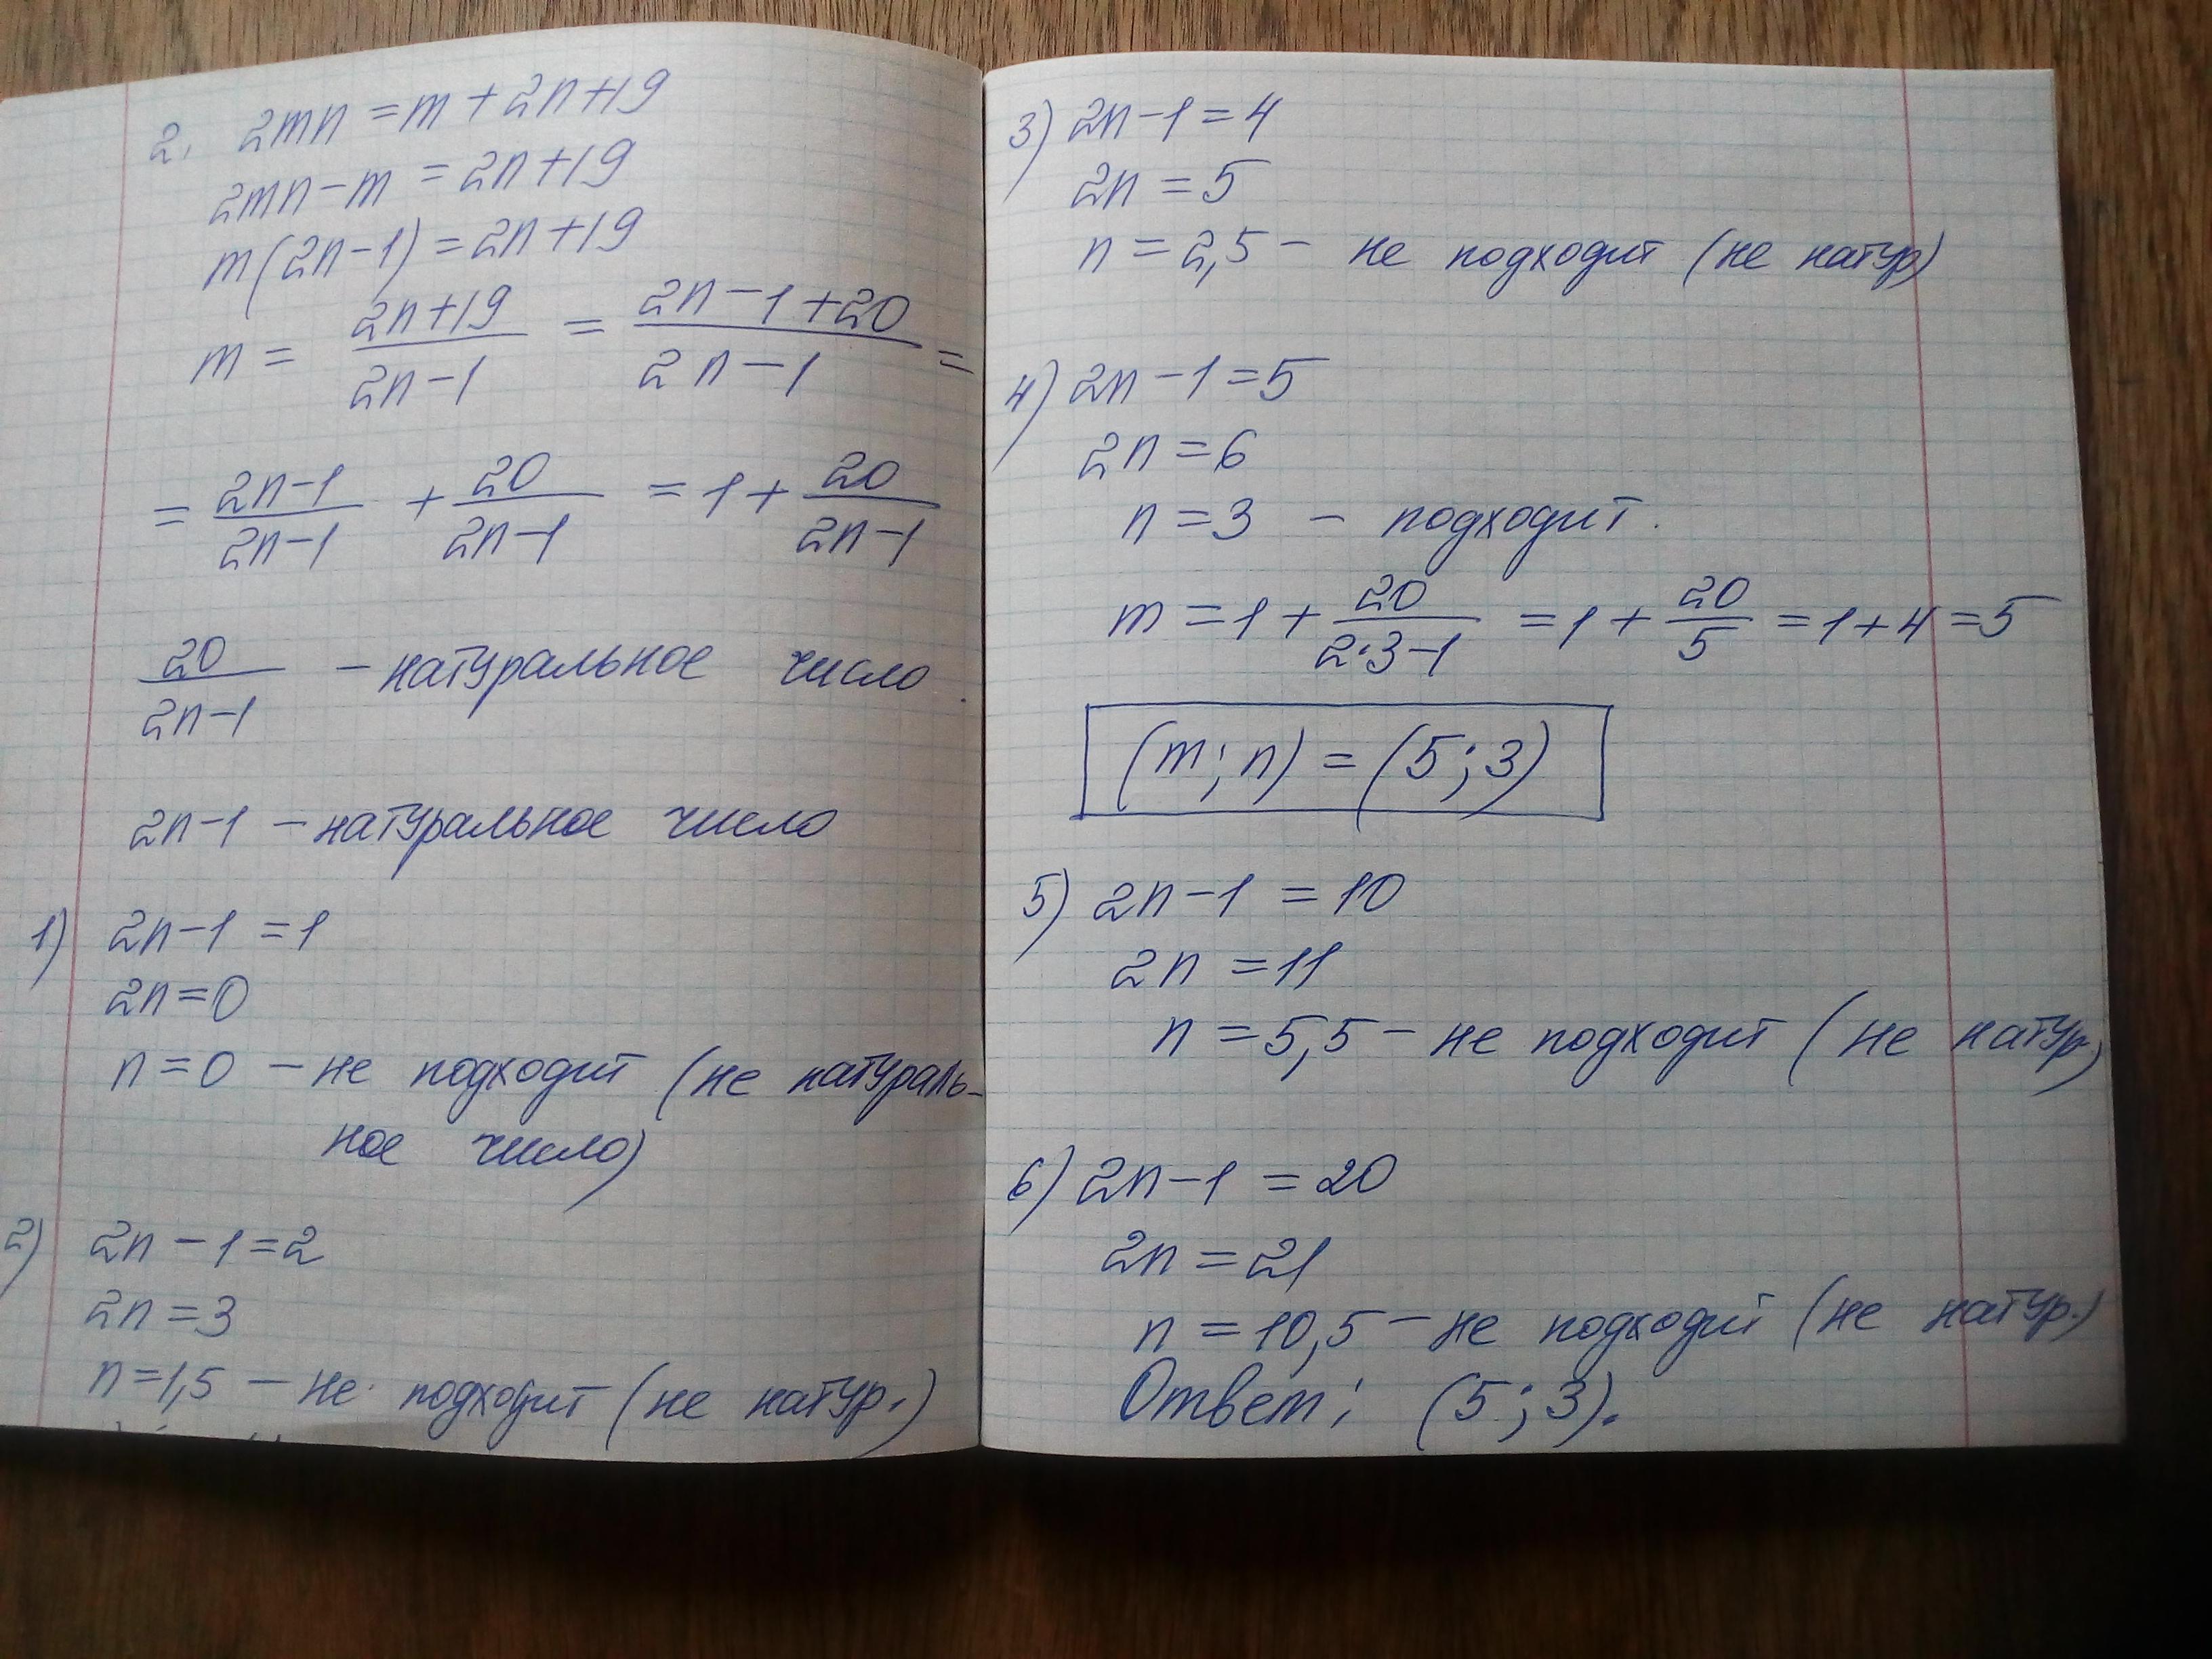 2. 2mn = m + 2n + 19
2mn - m = 2n + 19
m(2n - 1) = 2n + 19
m = (2n + 19)/(2n - 1) = (2n - 1 + 20)/(2n - 1) =
= (2n - 1)/(2n - 1) + 20/(2n - 1) = 1 + 20/(2n - 1)
20/(2n - 1) - натуральное число
2n - 1 - натуральное число
1) 2n - 1 = 1
2n = 0
n = 0 - не подходит (не натураль-
ное число)
2) 2n - 1 = 2
2n = 3
n = 1,5 - не подходит (не натур.)
3) 2n - 1 = 4
2n = 5
n = 2,5 - не подходит (не натур)
4) 2n - 1 = 5
2n = 6
n = 3 - подходит.
m = 1 + 20/(2·3-1) = 1 + 20/5 = 1 + 4 = 5
(m; n) = (5; 3)
5) 2n - 1 = 10
2n = 11
n = 5,5 - не подходит (не натур.)
6) 2n - 1 = 20
2n = 21
n = 10,5 - не подходит (не натур.)
Ответ: (5; 3).